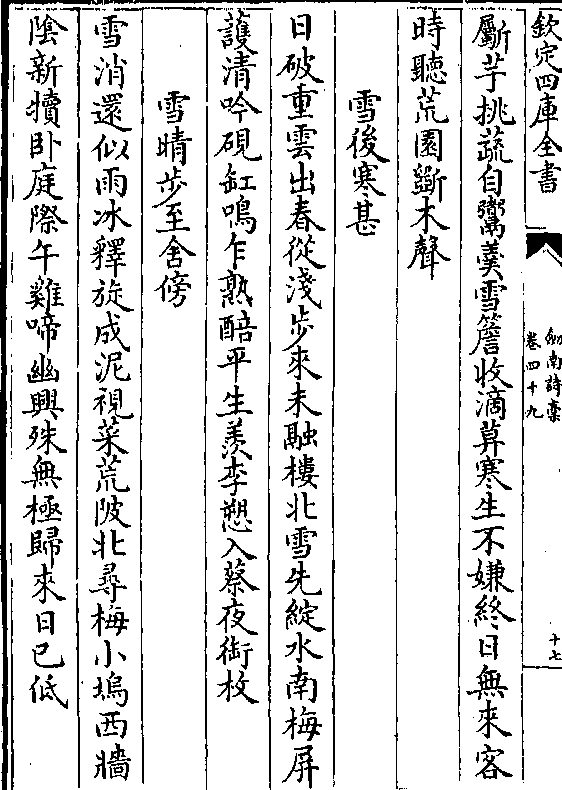 欽定四庫全書
劍南詩稾
卷四十九
十七
斸芋挑蔬自鬻羮雪簷收滴莫寒生不嫌終日無來客
時聽荒園斵木聲
雪後寒甚
日破重雲出春從淺步來未融樓北雪先綻水南梅屏
護清吟硯缸鳴乍熟醅平生羨李愬入蔡夜銜枚
雪晴步至舍傍
雪消還似雨冰釋旋成泥視菜荒陂北尋梅小塢西牆
陰新犢卧庭際午雞啼幽興殊無極歸來日已低